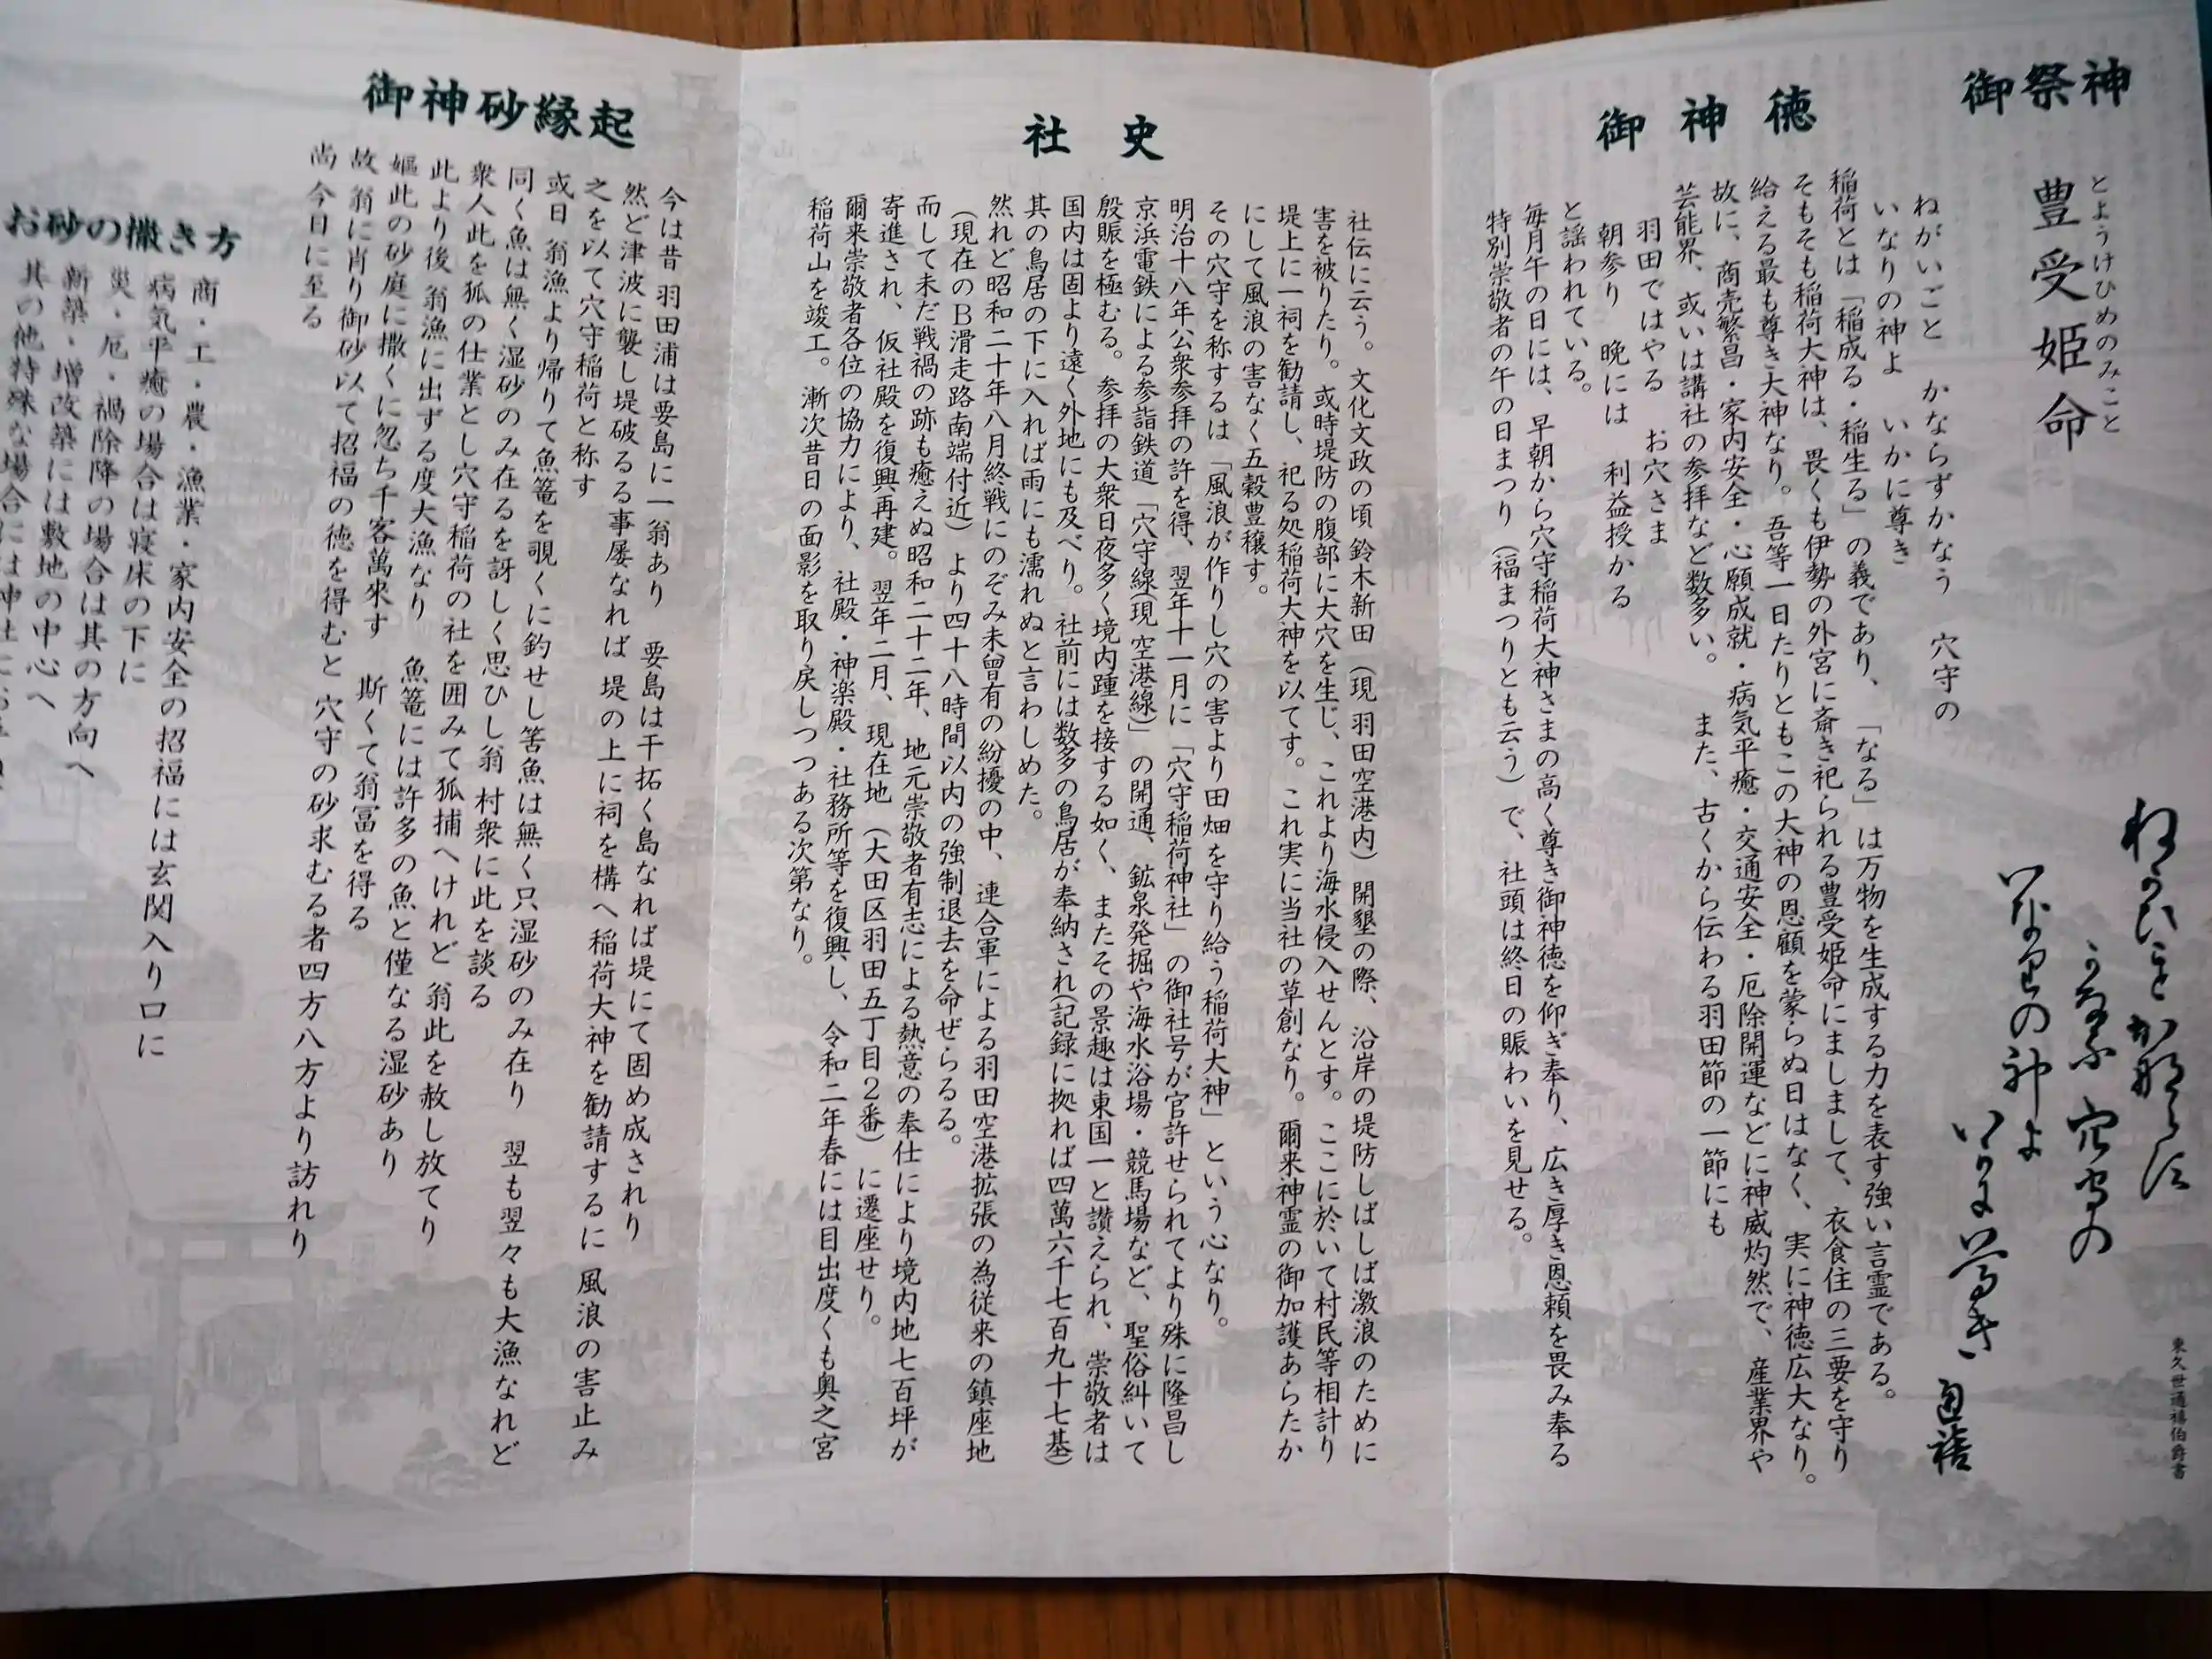 御祭神
とようけひめのみこと
豊受姫命
東久世通禧伯爵書
御神徳
ねがいごと　かならずかなう　穴守の
いなりの神よ　いかに尊き
稲荷とは「稲成る・稲生る」の義であり、「なる」は万物を生成する力を表す強い言霊である。
そもそも稲荷大神は、畏くも伊勢の外宮に斎き祀られる豊受姫命にましまして、衣食住の三要を守り
給える最も尊き大神なり。吾等一日たりともこの大神の恩顧を蒙らぬ日はなく、実に神徳広大なり。
故に、商売繁昌・家内安全・心願成就・病気平癒・交通安全・厄除開運などに神威灼然で、産業界や
芸能界、或いは講社の参拝など数多い。また、古くから伝わる羽田節の一節にも
羽田ではやる　お穴さま
朝参り　晩には　利益授かる
と謡われている。
毎月午の日には、早朝から穴守稲荷大神さまの高く尊き御神徳を仰ぎ奉り、広き厚き恩頼を畏み奉る
特別崇敬者の午の日まつり（福まつりとも云う）で、社頭は終日の賑わいを見せる。
社史
社伝に云う。文化文政の頃 鈴木新田（現 羽田空港内）開墾の際、沿岸の堤防しばしば激浪のために
害を被りたり。或時堤防の腹部に大穴を生じ、これより海水侵入せんとす。ここに於いて村民等相計り
堤上に一祠を勧請し、祀る処稲荷大神を以てす。これ実に当社の草創なり。爾来神霊の御加護あらたか
にして風浪の害なく五穀豊穣す。
その穴守を称するは「風浪が作りし穴の害より田畑を守り給う稲荷大神」という心なり。
明治十八年公衆参拝の許を得、翌年十一月に「穴守稲荷神社」の御社号が官許せられてより殊に隆昌し
京浜電鉄による参詣鉄道「穴守線（現 空港線）」の開通、鉱泉発掘や海水浴場・競馬場など、聖俗糾いて
殷賑を極むる。参拝の大衆日夜多く境内踵を接する如く、またその景趣は東国一と讃えられ、崇敬者は
国内は固より遠く外地にも及べり。社前には数多の鳥居が奉納され（記録に拠れば四萬六千七百九十七基）
其の鳥居の下に入れば雨にも濡れぬと言わしめた。
然れど昭和二十年八月終戦にのぞみ未曾有の紛擾の中、連合軍による羽田空港拡張の為従来の鎮座地
（現在のB滑走路南端付近）より四十八時間以内の強制退去を命ぜらるる。
而して未だ戦禍の跡も癒えぬ昭和二十二年、地元崇敬者有志による熱意の奉仕により境内地七百坪が
寄進され、仮社殿を復興再建。翌年二月、現在地（大田区羽田五丁目2番）に遷座せり。
爾来崇敬者各位の協力により、社殿・神楽殿・社務所等を復興し、令和二年春には目出度くも奥之宮
稲荷山を竣工。漸次昔日の面影を取り戻しつつある次第なり。
御神砂縁起
今は昔 羽田浦は要島に一翁あり　要島は干拓く島なれば堤にて固め成されり
然ど津波に襲し堤破るる事屡なれば 堤の上に祠を構へ稲荷大神を勧請するに 風浪の害止み
之を以て穴守稲荷と称す
或日 翁漁より帰りて魚篭を覗くに釣せし筈魚は無く只湿砂のみ在り　翌も翌々も大漁なれど
同く魚は無く湿砂のみ在るを訝しく思ひし翁 村衆に此を談る
衆人此を狐の仕業とし穴守稲荷の社を囲みて狐捕へけれど 翁此を赦し放てり
此より後 翁漁に出ずる度大漁なり　魚篭には許多の魚と僅なる湿砂あり
嫗此の砂庭に撒くに忽ち千客萬來す　斯くて翁冨を得る
故 翁に肖り御砂以て招福の徳を得むと 穴守の砂求むる者四方八方より訪れり
尚 今日に至る
お砂の撒き方
商・工・農・漁業・家内安全の招福には玄関入り口に
病気平癒の場合は寝床の下に
災・厄・禍除降の場合は其の方向へ
新築・増改築には敷地の中心へ
其の他特殊な場合には神社にお